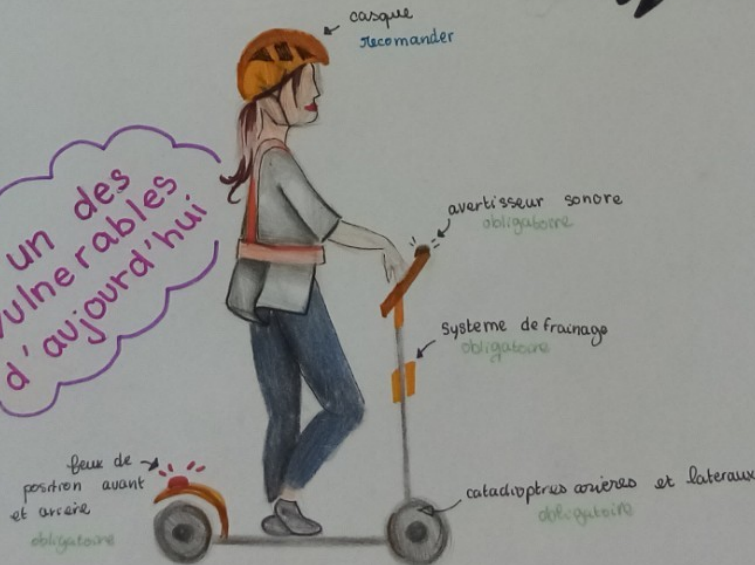 casque
recomander
un des
vulnerables
d'aujourd'hui
avertisseur sonore
obligatoire
systeme de frainage
obligatoire
feux de
position avant
et arriere
obligatoire
catadioptres arrières et lateraux
obligatoire